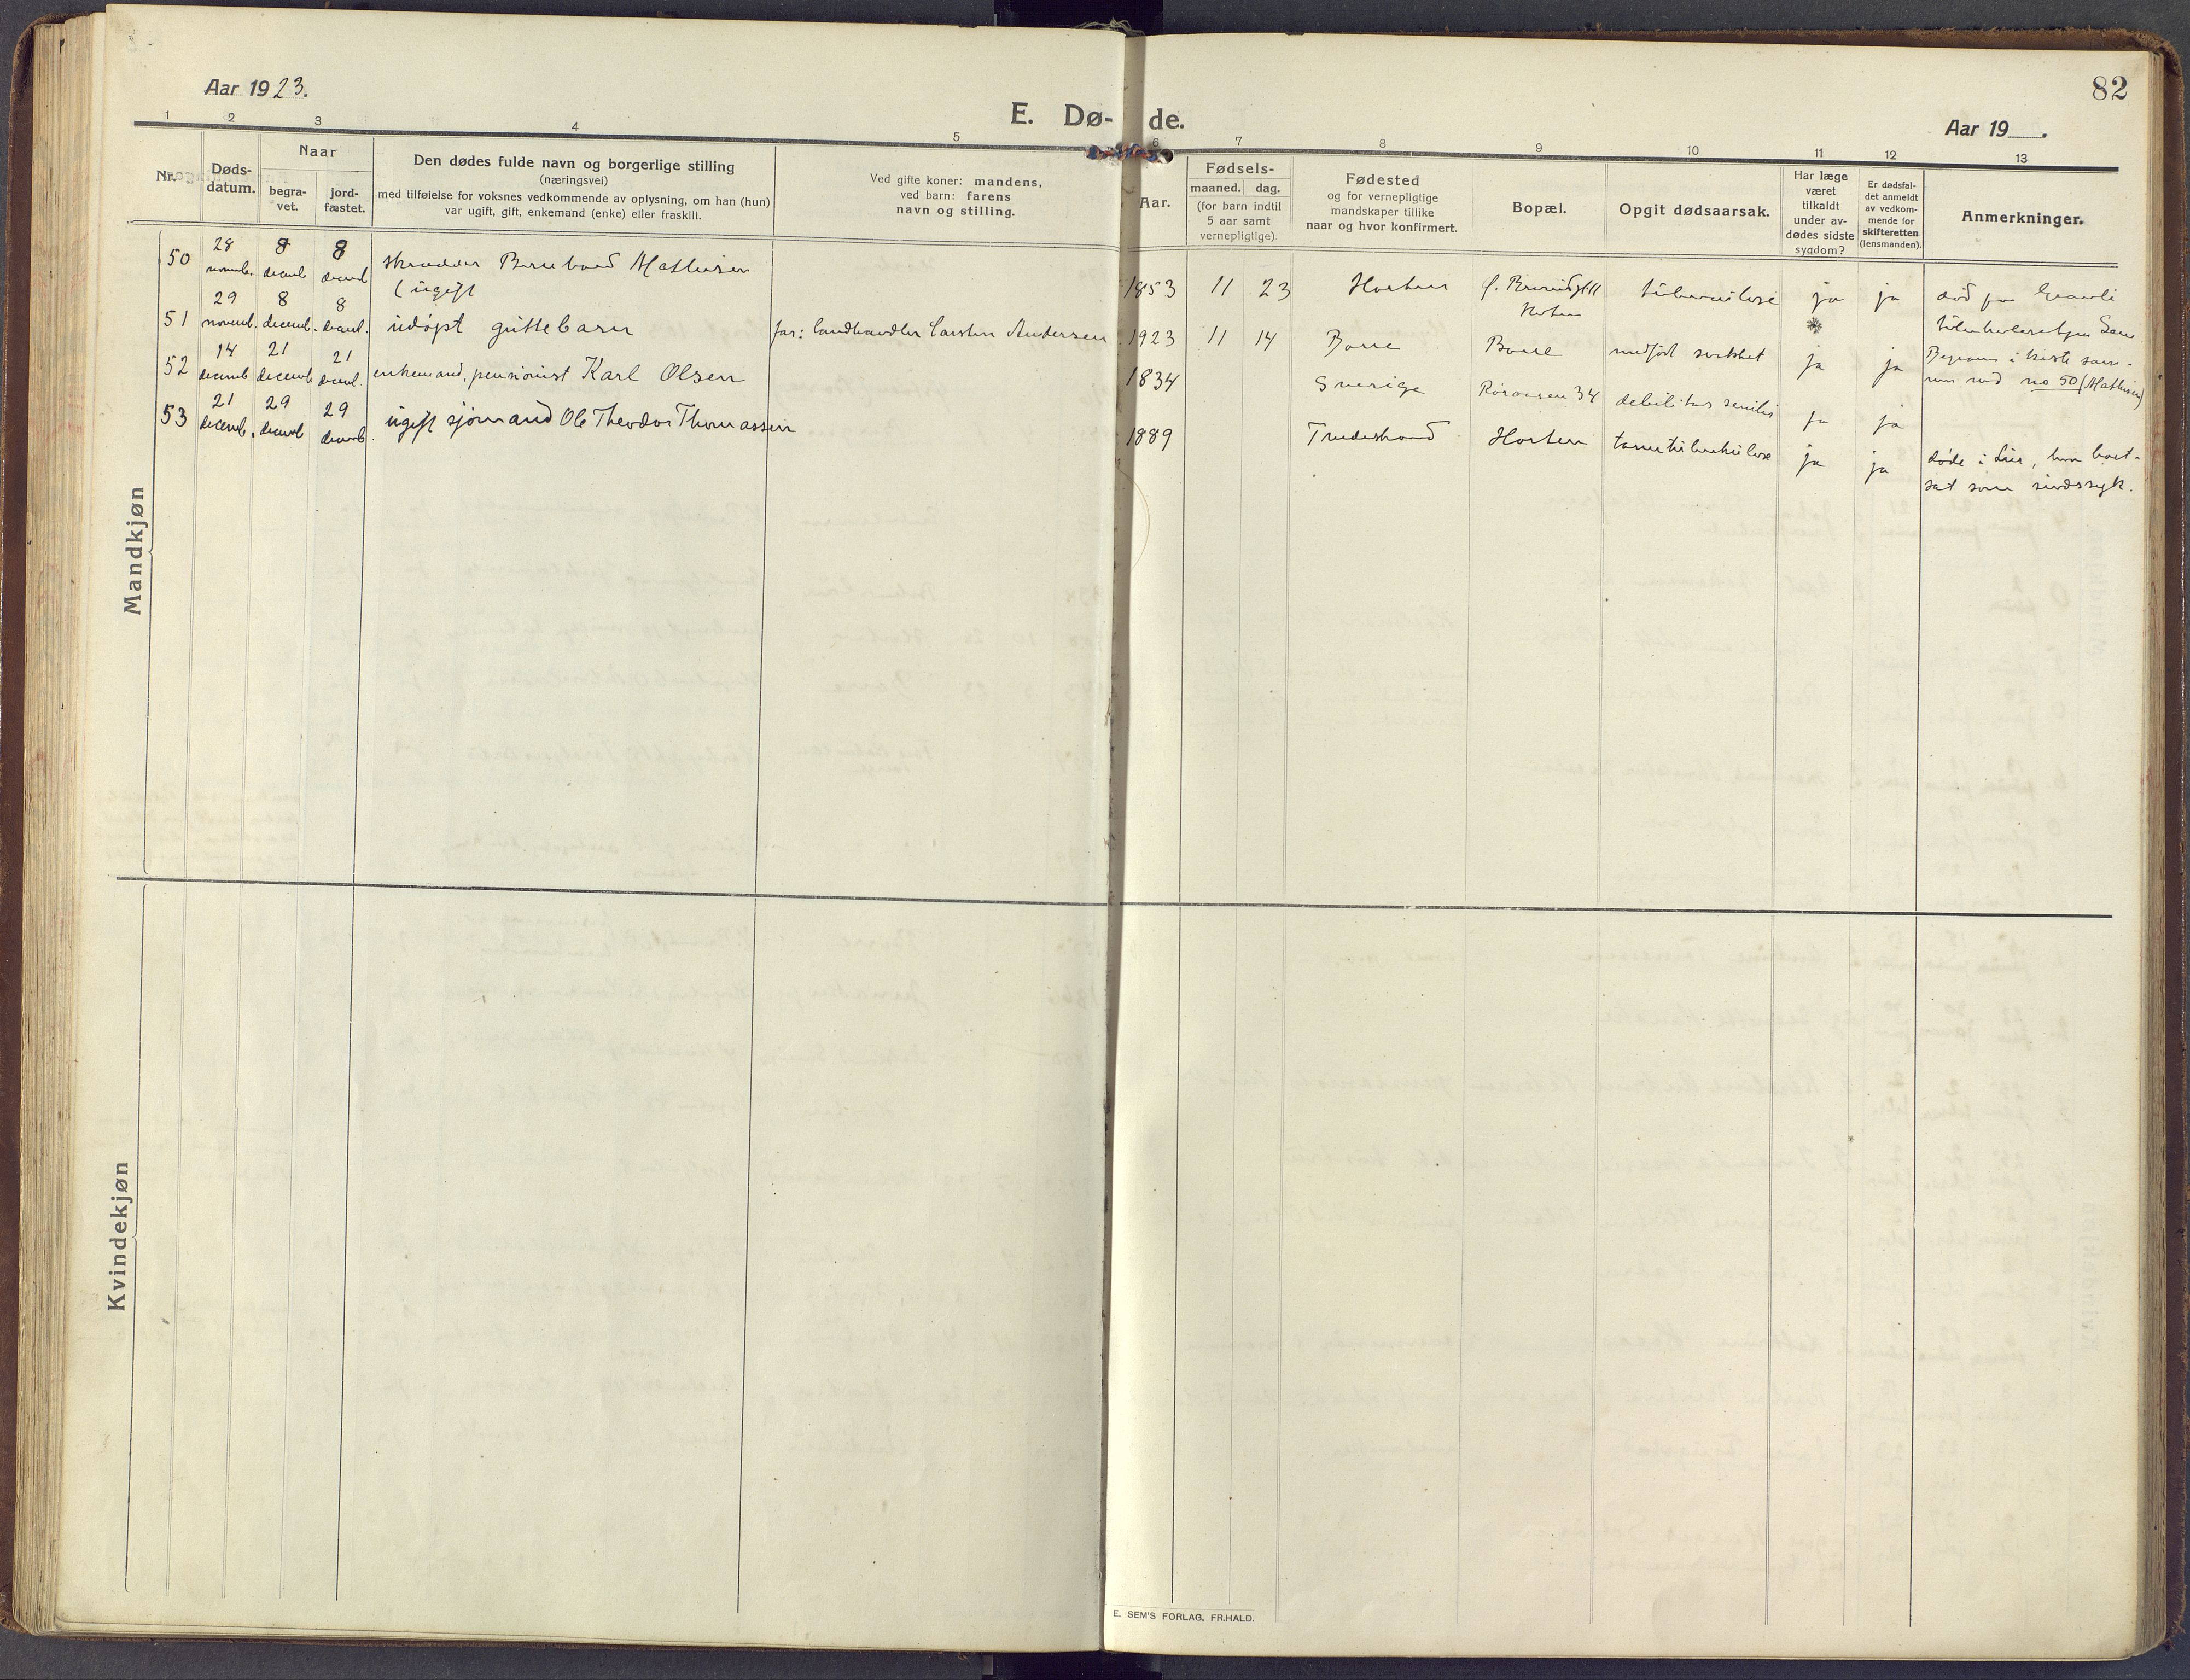 Aar 1923.
82
E. Dø- de.
Aar 19 .
1 2 3 4 5 6 7 8 9 10 11 12 13
Nr.
Døds-
datum.
Naar
begra-
vet.
jord-
fæstet.
Den dødes fulde navn og borgerlige stilling
(næringsvei)
med tilføielse for voksnes vedkommende av oplysning, om han (hun)
var ugift, gift, enkemand (enke) eller fraskilt.
Ved gifte koner: mandens,
ved barn: farens
navn og stilling.
Aar.
Fødsels-
maaned. dag.
(for barn indtil
5 aar samt
vernepligtige).
Fødested
og for vernepligtige
mandskaper tillike
naar og hvor konfirmert.
Bopæl.
Opgit dødsaarsak.
Har læge
været
tilkaldt
under av-
dødes sidste
sygdom?
Er dødsfal-
det anmeldt
av vedkom-
mende for
skifteretten
(lensmanden).
Anmerkninger.
Mandkjøn
50 28 novemb. 8 decemb 8 decemb skrædder Mathisen
(ugift
1853 11 23 Horten
Horten
tuberculose ja ja død paa
51 29 novemb. 8 decemb. 8 decemb. udøpt guttebarn far: landhandler Carsten Andersen 1923 11 14 Borre Borre medfødt svakhet ja ja Begravet i kiste sam-
men med no 50 (Mathisen)
52 14 decemb 21 decemb 21 decemb. enkemand, pensionist Karl Olsen 1834 Sverige Røraasen 34 debilitas senilis ja ja
53 21 decemb. 29 decemb 29 decemb. ugift sjømand Ole Theodor Thomassen 1889 Horten tarmtuberkulose ja ja døde i Lier, hvor bort-
sat som sindssyk.
Kvindekjøn
E. SEM'S FORLAG, FR.HALD.